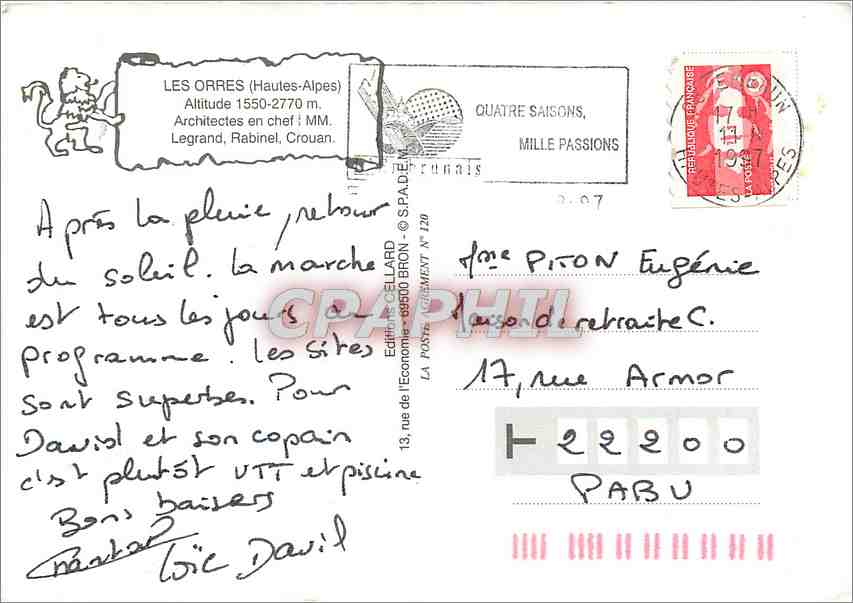 LES ORRES (Hautes-Alpes)
Altitude 1550-2770 m.
Architectes en chef : MM.
Legrand, Rabinel, Crouan.
QUATRE SAISONS,
MILLE PASSIONS
brunais
8-97
EMBRUN
17 H
1997
HAUTES-ALPES
REPUBLIQUE FRANÇAISE
LA POSTE
Après la pluie, retour
du soleil. La marche
est tous les jours au
programme. Les sites
sont superbes. Pour
David et son copain
c'est plutôt VTT et piscine
Bons baisers
Chantal
Loïc David
Editions CELLARD
13, rue de l'Economie - 69500 BRON - © S.P.A.D.E.M.
LA POSTE AGREMENT N° 120
CPAPHIL
Mme PITON Eugénie
Maison de retraite C.
17, rue Armor
22200
PABU